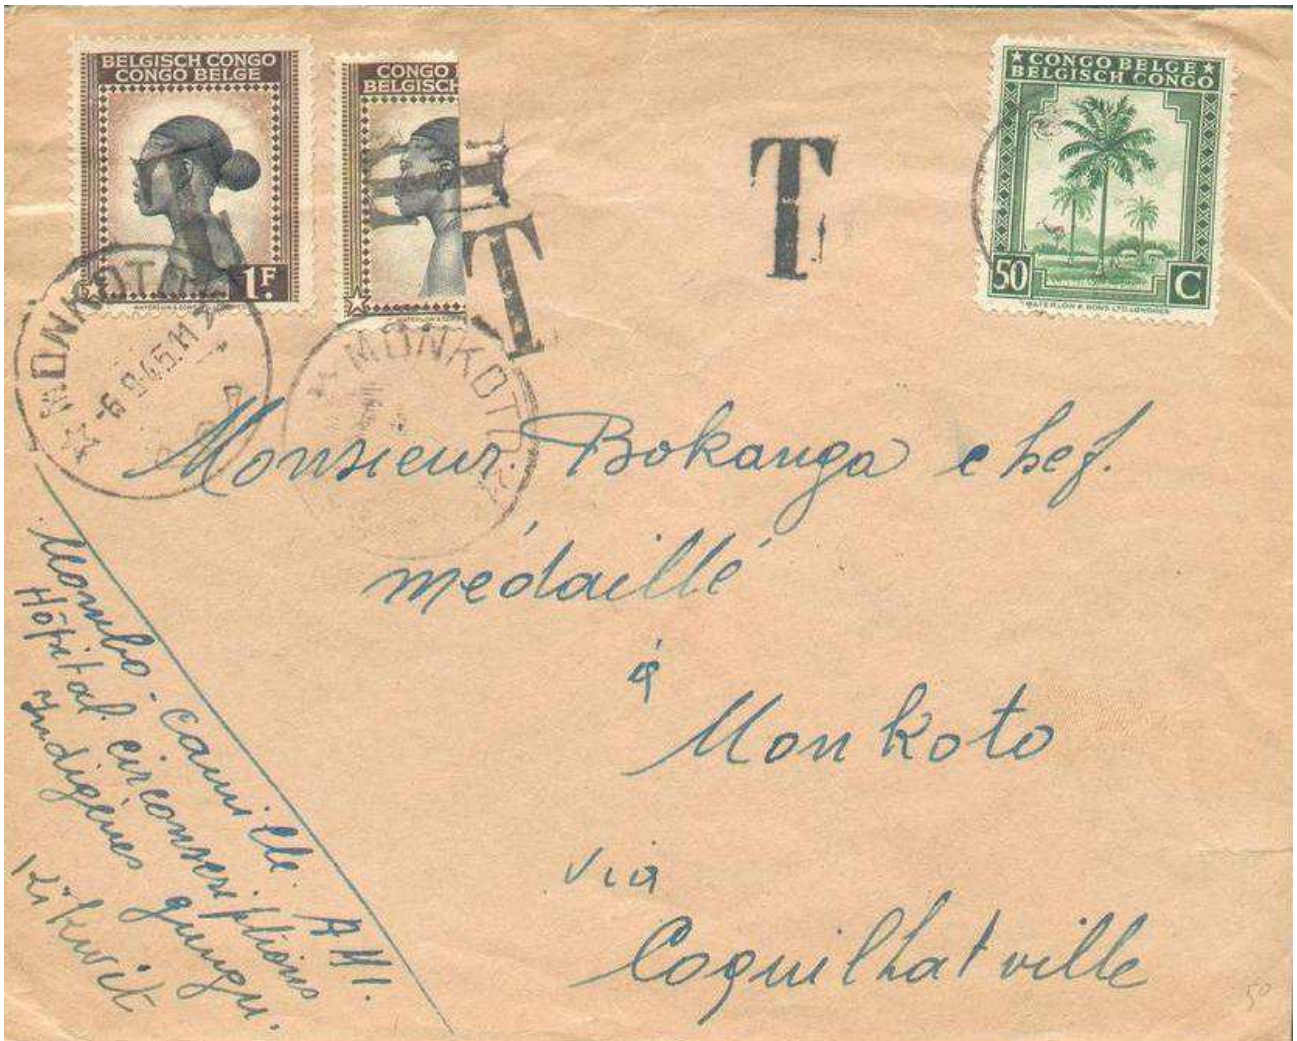 BELGISCH CONGO
CONGO BELGE
1F.
WATERLOW & SONS
CONGO
BELGISCH
WATERLOW & SONS
T
T
T
★ CONGO BELGE ★
BELGISCH CONGO
50 C
WATERLOW & SONS LTD. LONDRES
MONKOTO
-6.9.45.11
MONKOTO
Monsieur Bokanga chef.
médaillé
à
Monkoto
via
Coquilhatville
Mombo. Camille. AMI.
Hôpital circonscriptions
Indigènes gungu.
Kikwit
50